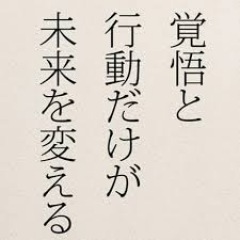 覚悟と
行動だけが
未来を変える